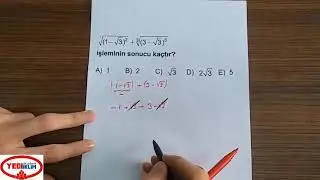 √(1-√3)² + ³√(3-√3)³
işleminin sonucu kaçtır?
A) 1 B) 2 C) √3 D) 2√3 E) 5
|1-√3| + (3-√3)
-1+√3+3-√3
YEDİ
İKLİM